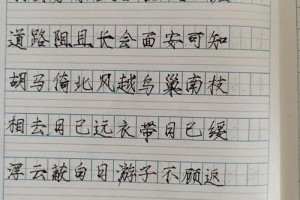 道路阻且长会面安可知
胡马倚北风越鸟巢南枝
相去日已远衣带日已缓
浮云蔽白日游子不顾返